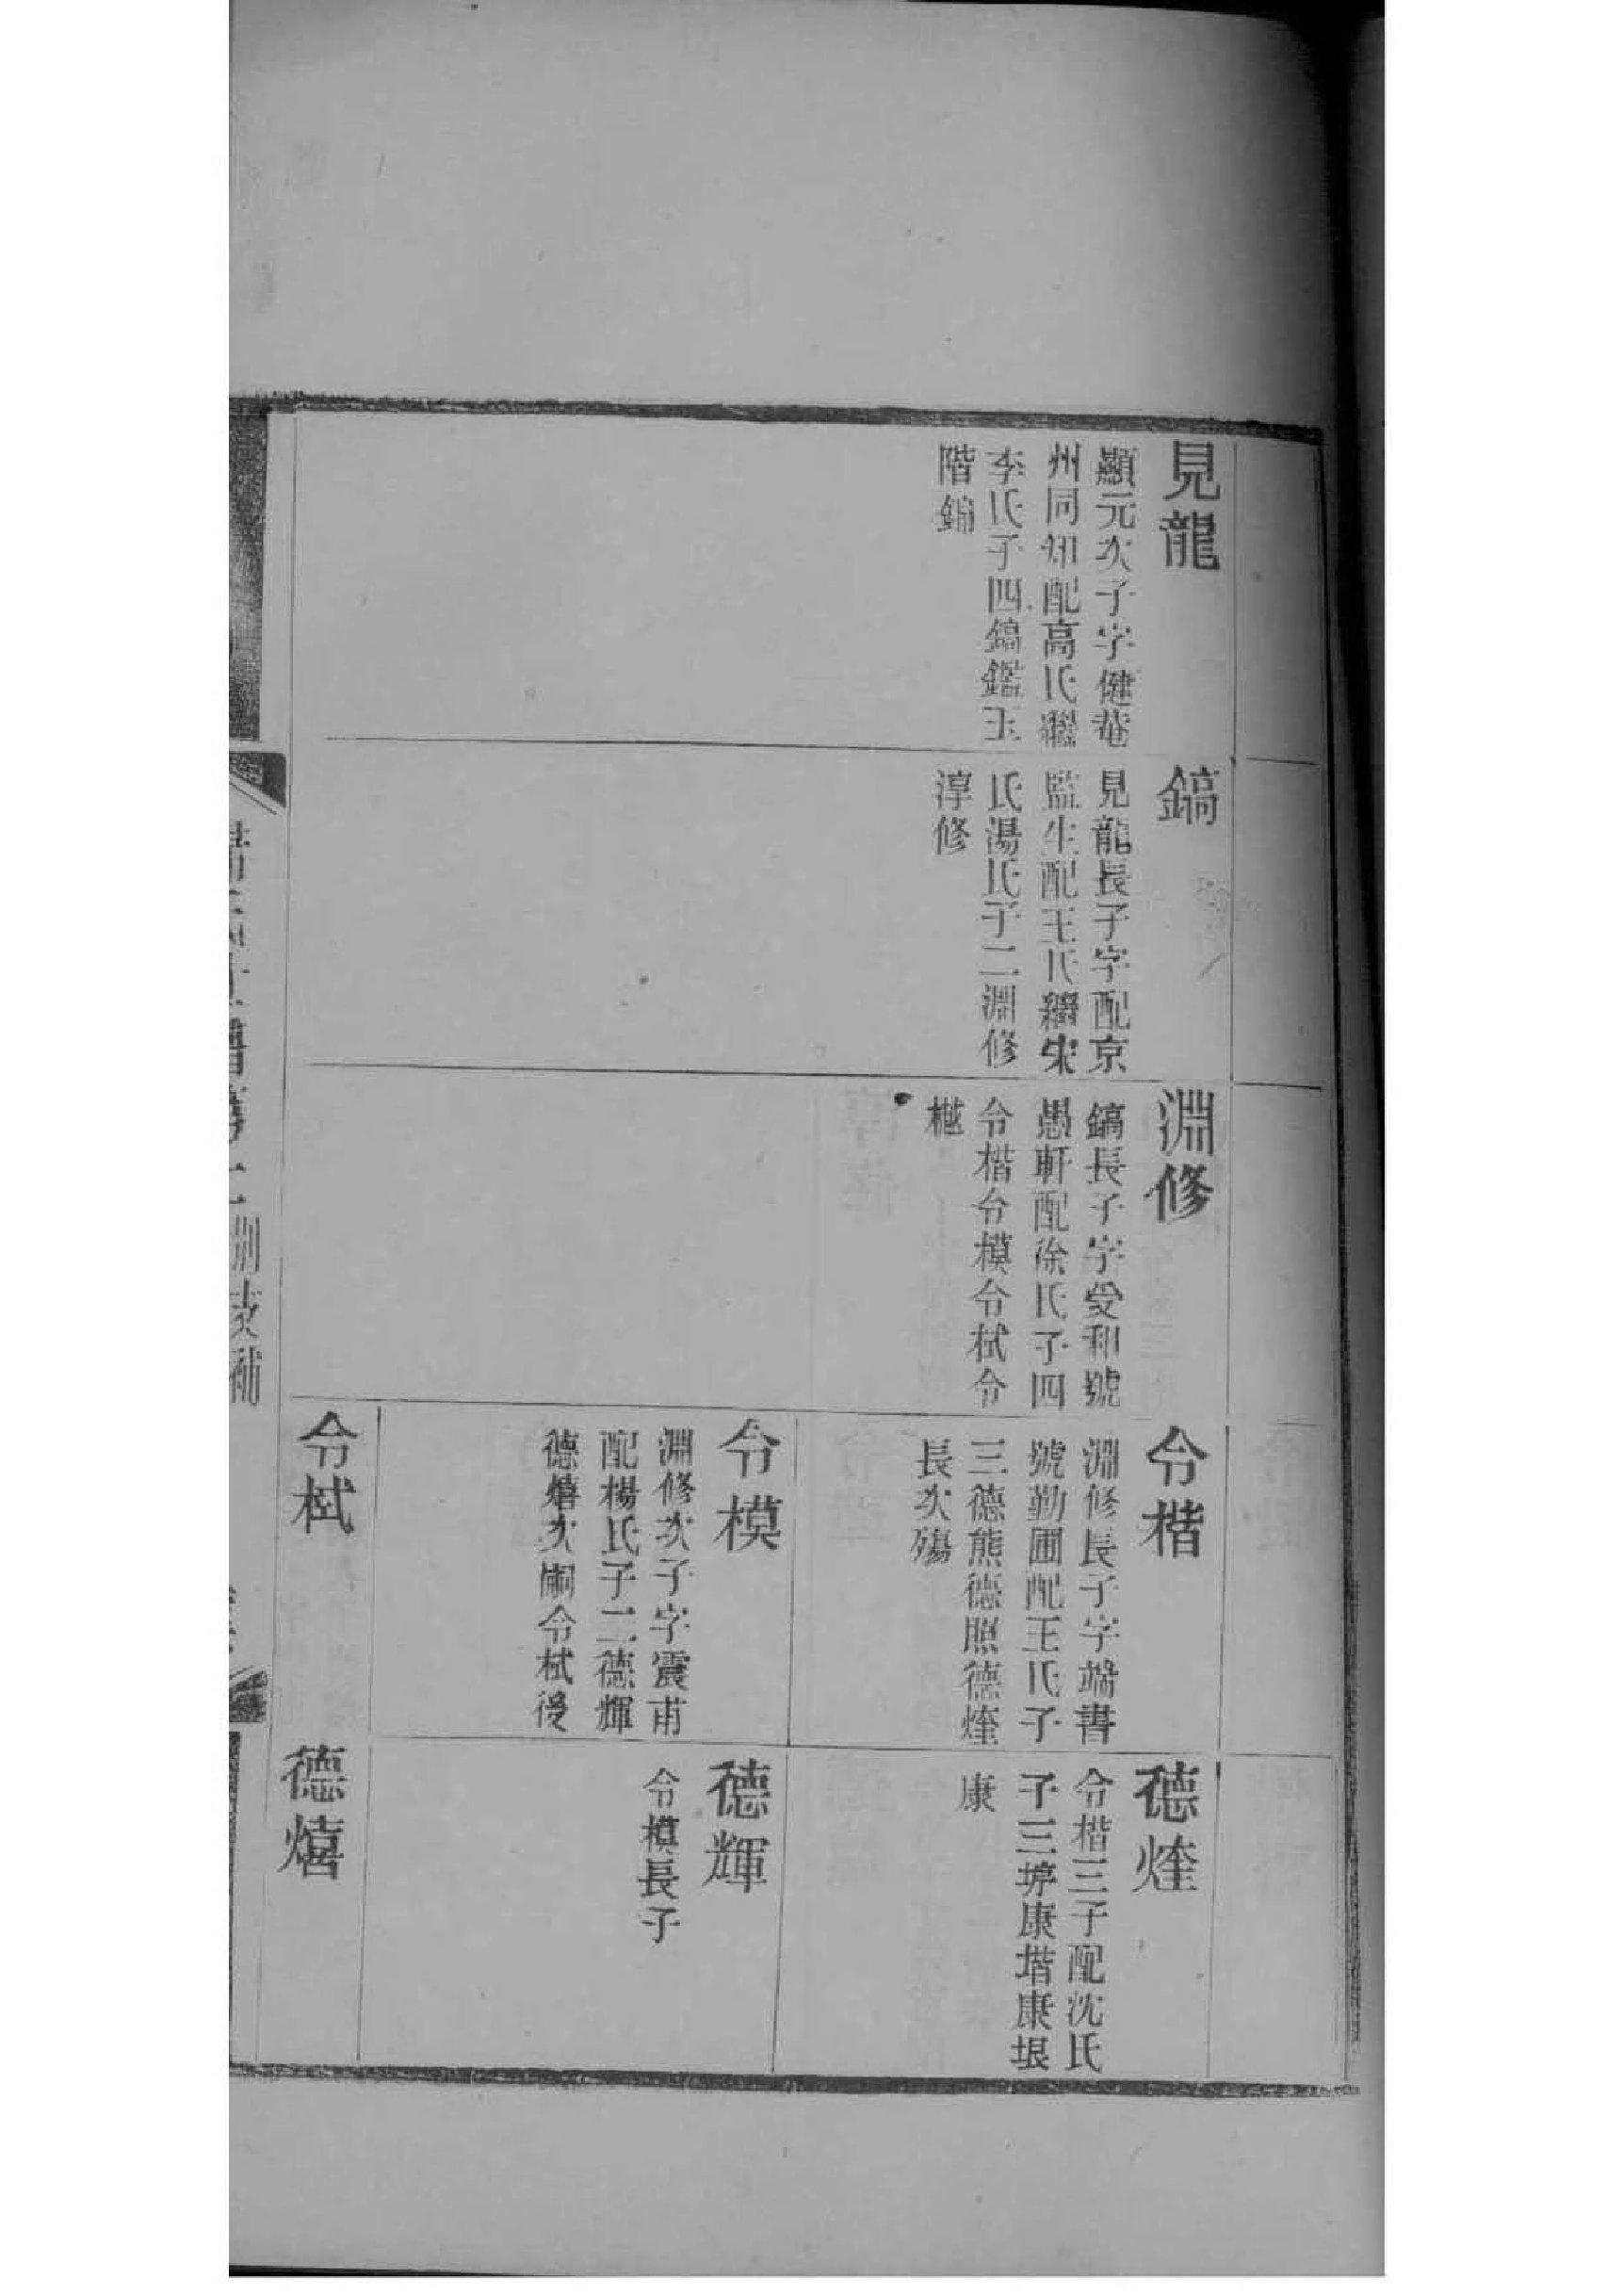 見龍
顯元次子字健菴
州同知配高氏繼
李氏子四鎬鑑玉
階錦
鎬
見龍長子字配京
監生配王氏繼宋
氏湯氏子二淵修
淳修
淵修
鎬長子字受和號
愚軒配徐氏子四
令楷令模令栻令
樾
令楷
淵修長子字端書
號勤圃配王氏子
三德熊德照德煃
長次殤
德煃
令楷三子配沈氏
子三垿康堦康垠
康
令模
淵修次子字震甫
配楊氏子二德輝
德熺次嗣令栻後
德輝
令模長子
令栻
德熺
刪支補